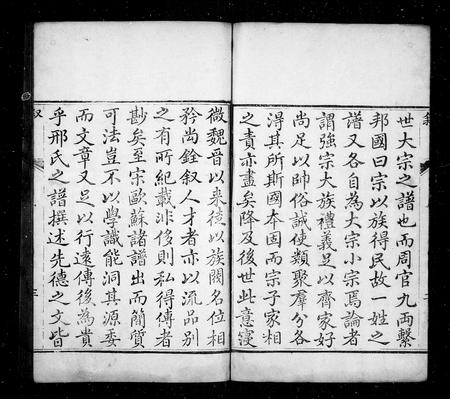 世大宗之譜也而周官九兩繫
邦國曰宗以族得民故一姓之
譜又各自為大宗小宗焉論者
謂強宗大族禮義足以齊家好
尚足以帥俗誠使類聚羣分各
淂其所斯國本固而宗子家相
之責亦盡矣降及後世此意寖
微魏晉以來徒以族閥名位相
矜尚銓叙人才者亦以流品別
之有所紀載非侈則私得傳者
尠矣至宗歐蘇諸譜出而簡質
可法豈不以學識能洞其源委
而文章又足以行遠傳後為貴
乎邢氏之譜撰述先德之文皆
叙
三